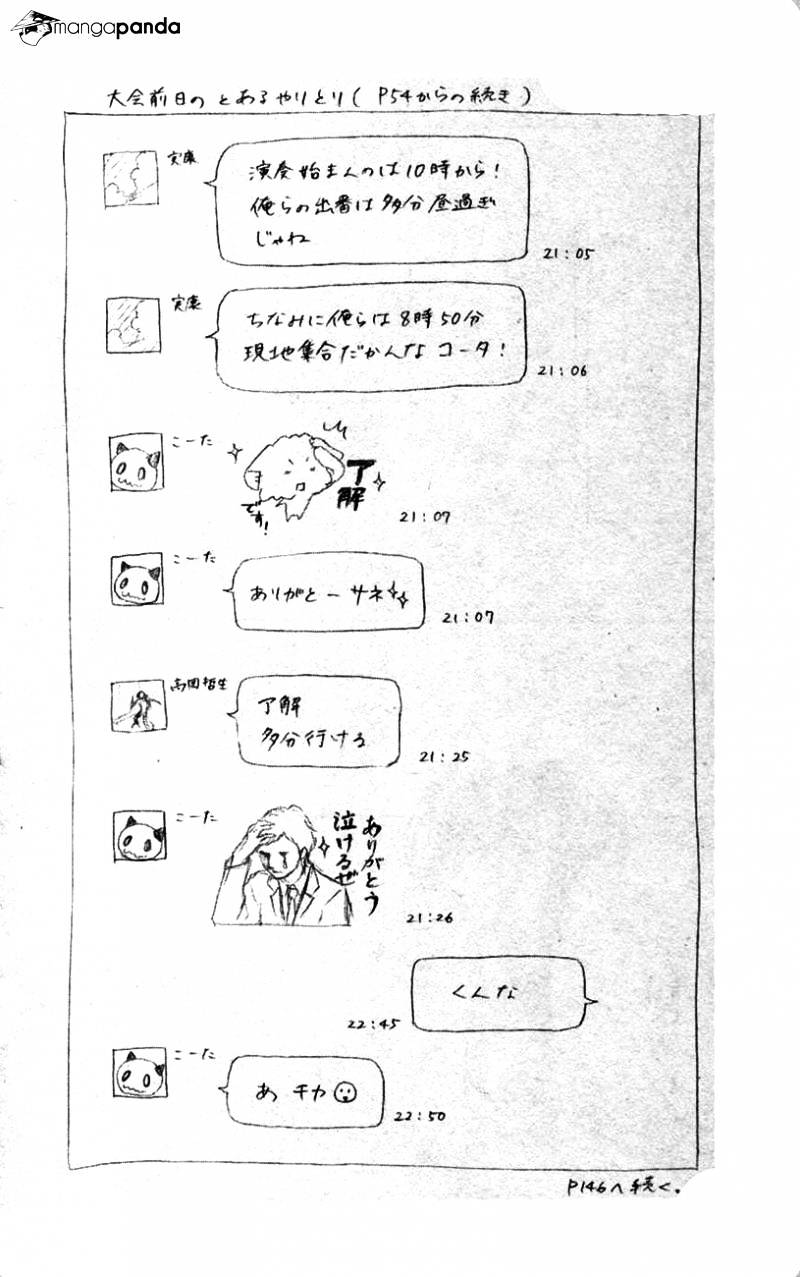 mangapanda
大会前日の とあるやりとり( P54からの続き )
実康
演奏始まんのは10時から!
俺らの出番は多分昼過ぎ
じゃね
21:05
実康
ちなみに俺らは8時50分
現地集合だかんな コータ!
21:06
こーた
了解
です!
21:07
こーた
ありがとー サネ
21:07
高岡哲生
了解
多分行ける
21:25
こーた
ありがとう
泣けるぜ
21:26
くんな
22:45
こーた
あ チカ
22:50
P146へ続く。